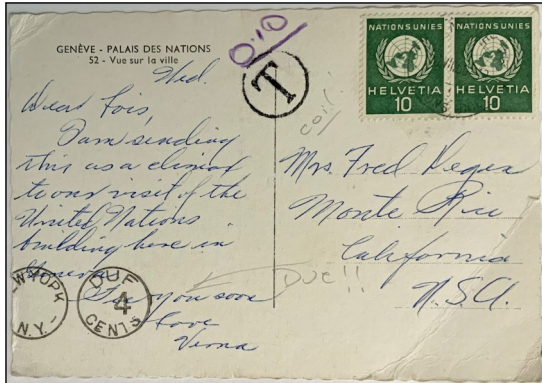 GENÈVE - PALAIS DES NATIONS
52 - Vue sur la ville
Wed.
Dear Lois,
I am sending
this as a climax
to our visit of the
United Nations
building here in
Geneva.
See you soon
Love
Verna
0.10
T
coil!
NATIONS UNIES
HELVETIA
10
NATIONS UNIES
HELVETIA
10
Mrs. Fred
Monte Rio
California
U.S.A.
DUE!!
W YORK
N.Y.
DUE
4
CENTS